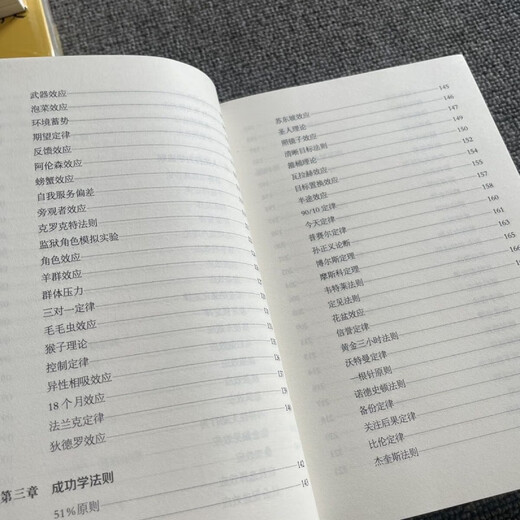 武器效应
泡菜效应
环境蓄势
期望定律
反馈效应
阿伦森效应
螃蟹效应
自我服务偏差
旁观者效应
克罗克特法则
监狱角色模拟实验
角色效应
羊群效应
群体压力
三对一定律
毛毛虫效应
猴子理论
控制定律
异性相吸效应
18个月效应
法兰克定律
狄德罗效应
第三章 成功学法则 142
51%原则 143
苏东坡效应 145
圣人理论 146
照镜子效应 147
清晰目标法则 149
跳桶理论 150
瓦拉赫效应 152
目标置换效应 154
半途效应 155
90/10定律 157
今天定律 158
普赛尔定律 160
孙正义论断 161
博尔斯定理 163
摩斯科定理 165
韦特莱法则 166
定见法则
花盆效应
信誉定律
黄金三小时法则
沃特曼定律
一根针原则
诺德史顿法则
备份定律
关注后果定律
比伦定律
杰奎斯法则